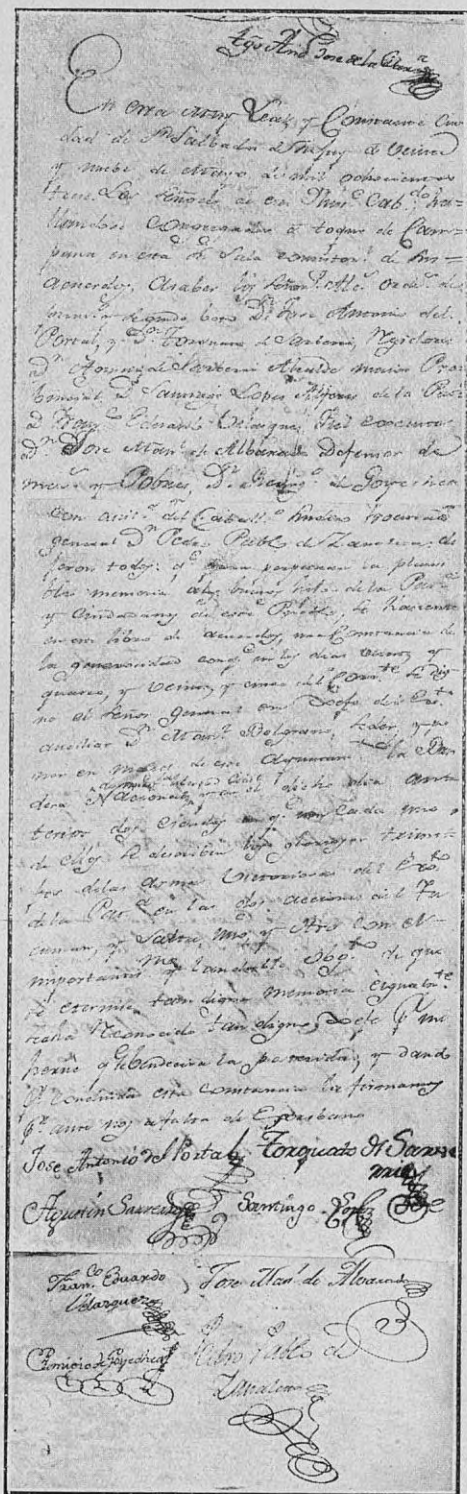 tgo And Jose de la
En esta muy Leal, y Constante Ciu
dad de Sn Salbador de Jujuy a veinte
y nuebe de Mayo de mil ochocientos
trece. Los Señores de este Cabdo ha
llandose Congregados a toque de Cam=
pana en esta Sala de sus=
acuerdos; A saber los Señores Alc. ordin. de
primero y segundo boto Dn Jose Antonio del
Portal, y Dn Torquato de Sarberri, Regidores
Dn Agustin de Sarberri Alcalde maior Pro
bincial, Dn Santiago Lopez Alferes de la Pat
Dn Franco Eduardo Velasquez, Fiel executor
Dn Jose Manl de Albarado Defensor de
menores y Pobres, Dn Remigio de Goyechea
con asista del Caball Sindico Procurador
general Dn Pedro Pablo de Zavaleta; di
jeron todos: qe para perpetuar la plausi
ble memoria a los buenos hijos de la Patria
y Ciudadanos de este Pueblo, se haciente
en este libro de acuerdos una Constancia de
la generosidad con qe en los dias veinte y
quatro, y veinte y cinco del corrte se dig
no el Señor General en Jefe del Exto
auxiliar Dn Manl Belgrano, ceder, y po
ner en manos de este Ayuntamto la Ban
dera Nacional en el dicho dia ante
rior dos Escudos en qe en cada uno
de ellos se describen los gloriosos triunfos
de las Armas Victoriosas del Exto
de la Patria en las dos acciones del Tu
cuman, y Salta, uno, y otro con el
importante y laudable objto de que
se eternice tan digna memoria e igualte
reconocido tan digno Jefe pr un
heroe qe bendecira la posteridad, y dando
pr concluida esta constancia la firmamos
pr ante nos a falta de Escribano
Jose Antonio del Portal Torquato de Sarberri
Agustin Sarberri Santiago Lopez
Franco Eduardo Jose Manl de Albarado
Velazquez
Remigio de Goyechea Pedro Pablo de
Zavaleta